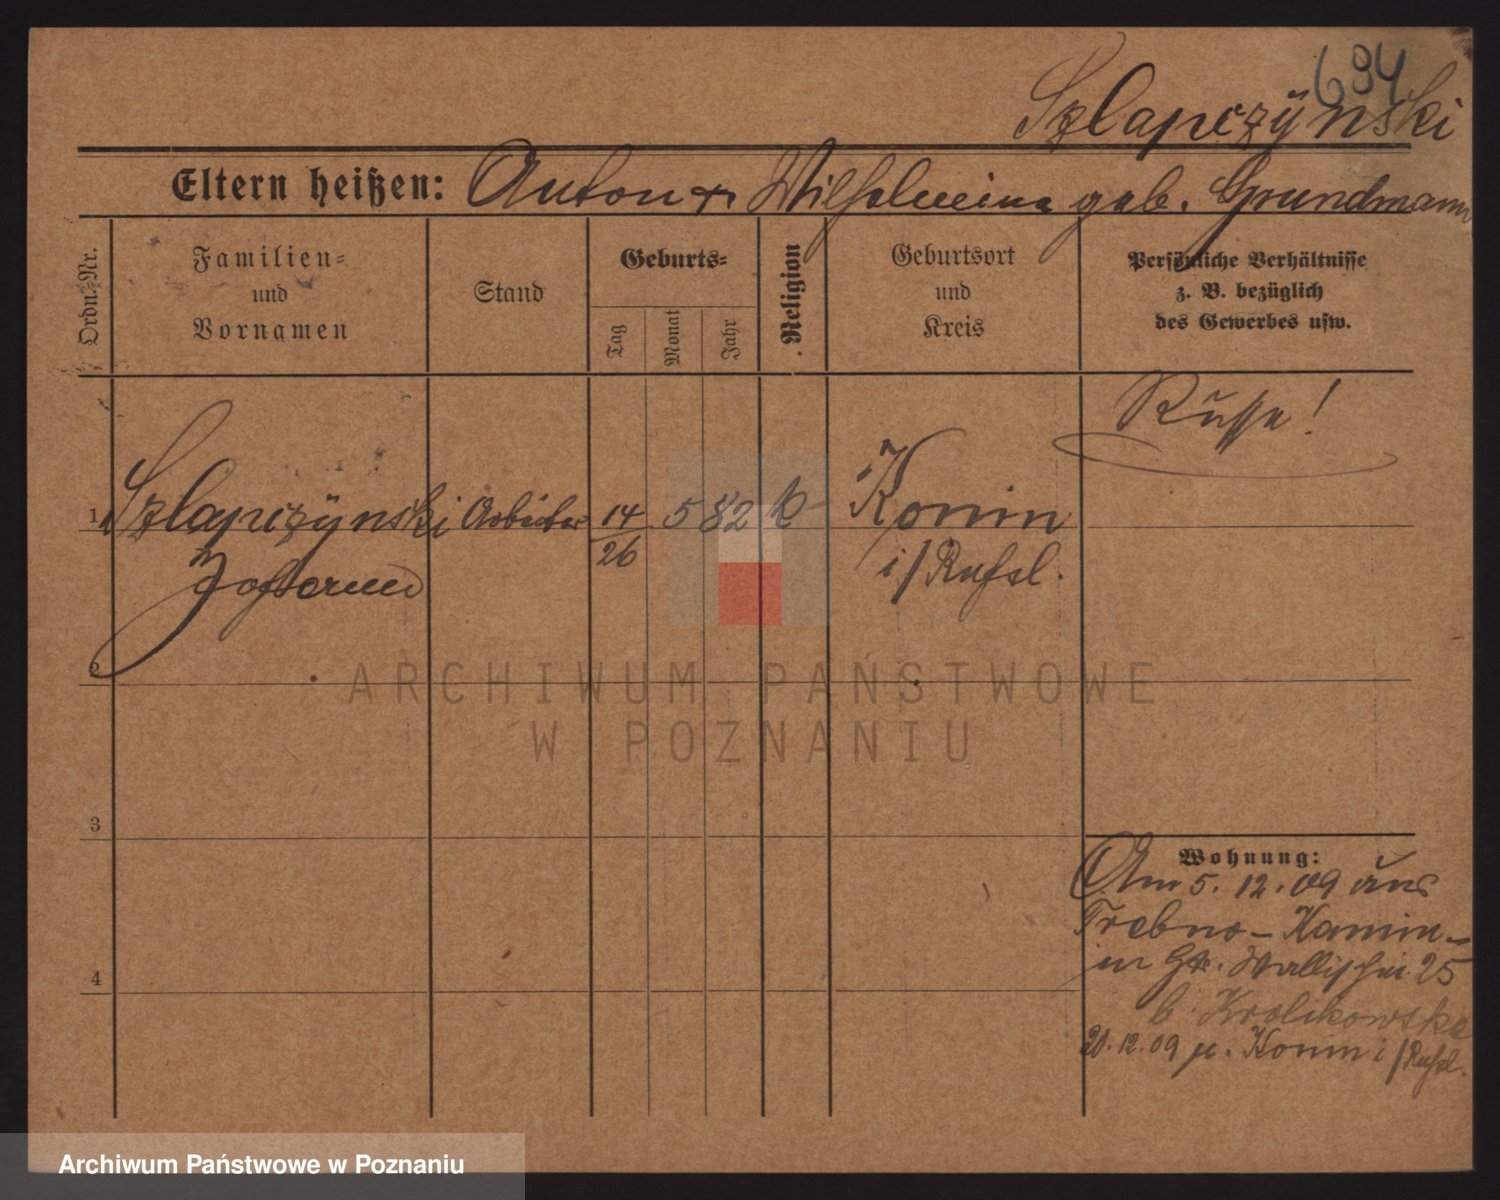 694
Szlapczÿnski
Eltern heißen: Anton u Wilhelmina geb. Grundmann
Ordn.-Nr.
Familien-
und
Vornamen
Stand
Geburts-
Tag
Monat
Jahr
Religion
Geburtsort
und
Kreis
Persönliche Verhältnisse
z. B. bezüglich
des Gewerbes usw.
Russe!
1 Szlapczÿnski Arbeiter 14 5 82 k Konin
26
i/Rußl.
2
3
4
Wohnung:
Am 5. 12. 09 aus
Trebno-Kamin-
in Wallischei 25
b. Krolikowska
21. 12. 09 n. Konin i/Rußl.
ARCHIWUM PAŃSTWOWE
W POZNANIU
Archiwum Państwowe w Poznaniu